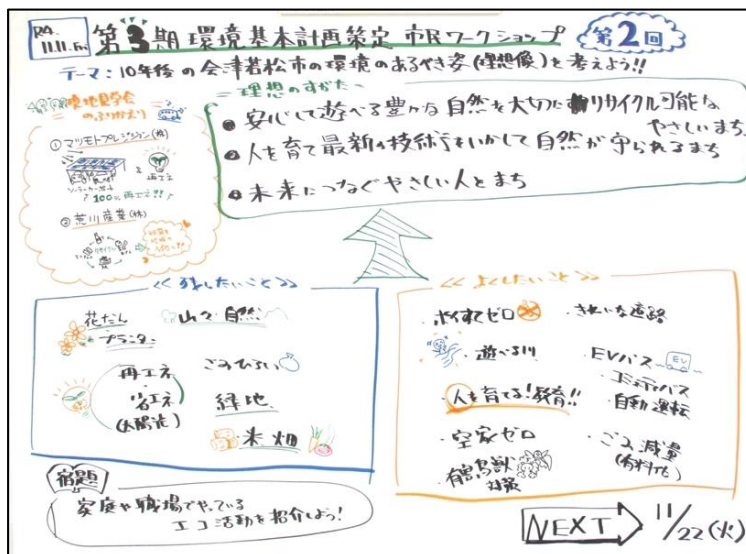 R4.
11.11.Fri
第3期 環境基本計画策定 市民ワークショップ
第2回
テーマ：10年後の会津若松市の環境のあるべき姿(理想像)を考えよう!!
現地見学会
のふりかえり
① マツモトプレシジョン(株)
再エネ
100%再エネ!!
② 荒川産業(株)
リサイクル
理想のすがた
安心して遊べる豊かな自然を大切に リサイクル可能な
やさしいまち
人を育て最新の技術をいかして自然が守られるまち
未来につなぐやさしい人とまち
残したいこと
花だん
プランター
山々・自然
再エネ
・
省エネ
(太陽光)
ごみひろい
緑地
米・畑
よくしたいこと
・ポイ捨てゼロ
・遊べる川
・人を育てる!教育!!
・空家ゼロ
・有害鳥獣
対策
・きれいな道路
・EVバス
EV
・コミュニティバス
・自動運転
・ごみ減量
(有料化)
宿題
家庭や職場でやっている
エコ活動を紹介しよう!
NEXT
11/22(火)